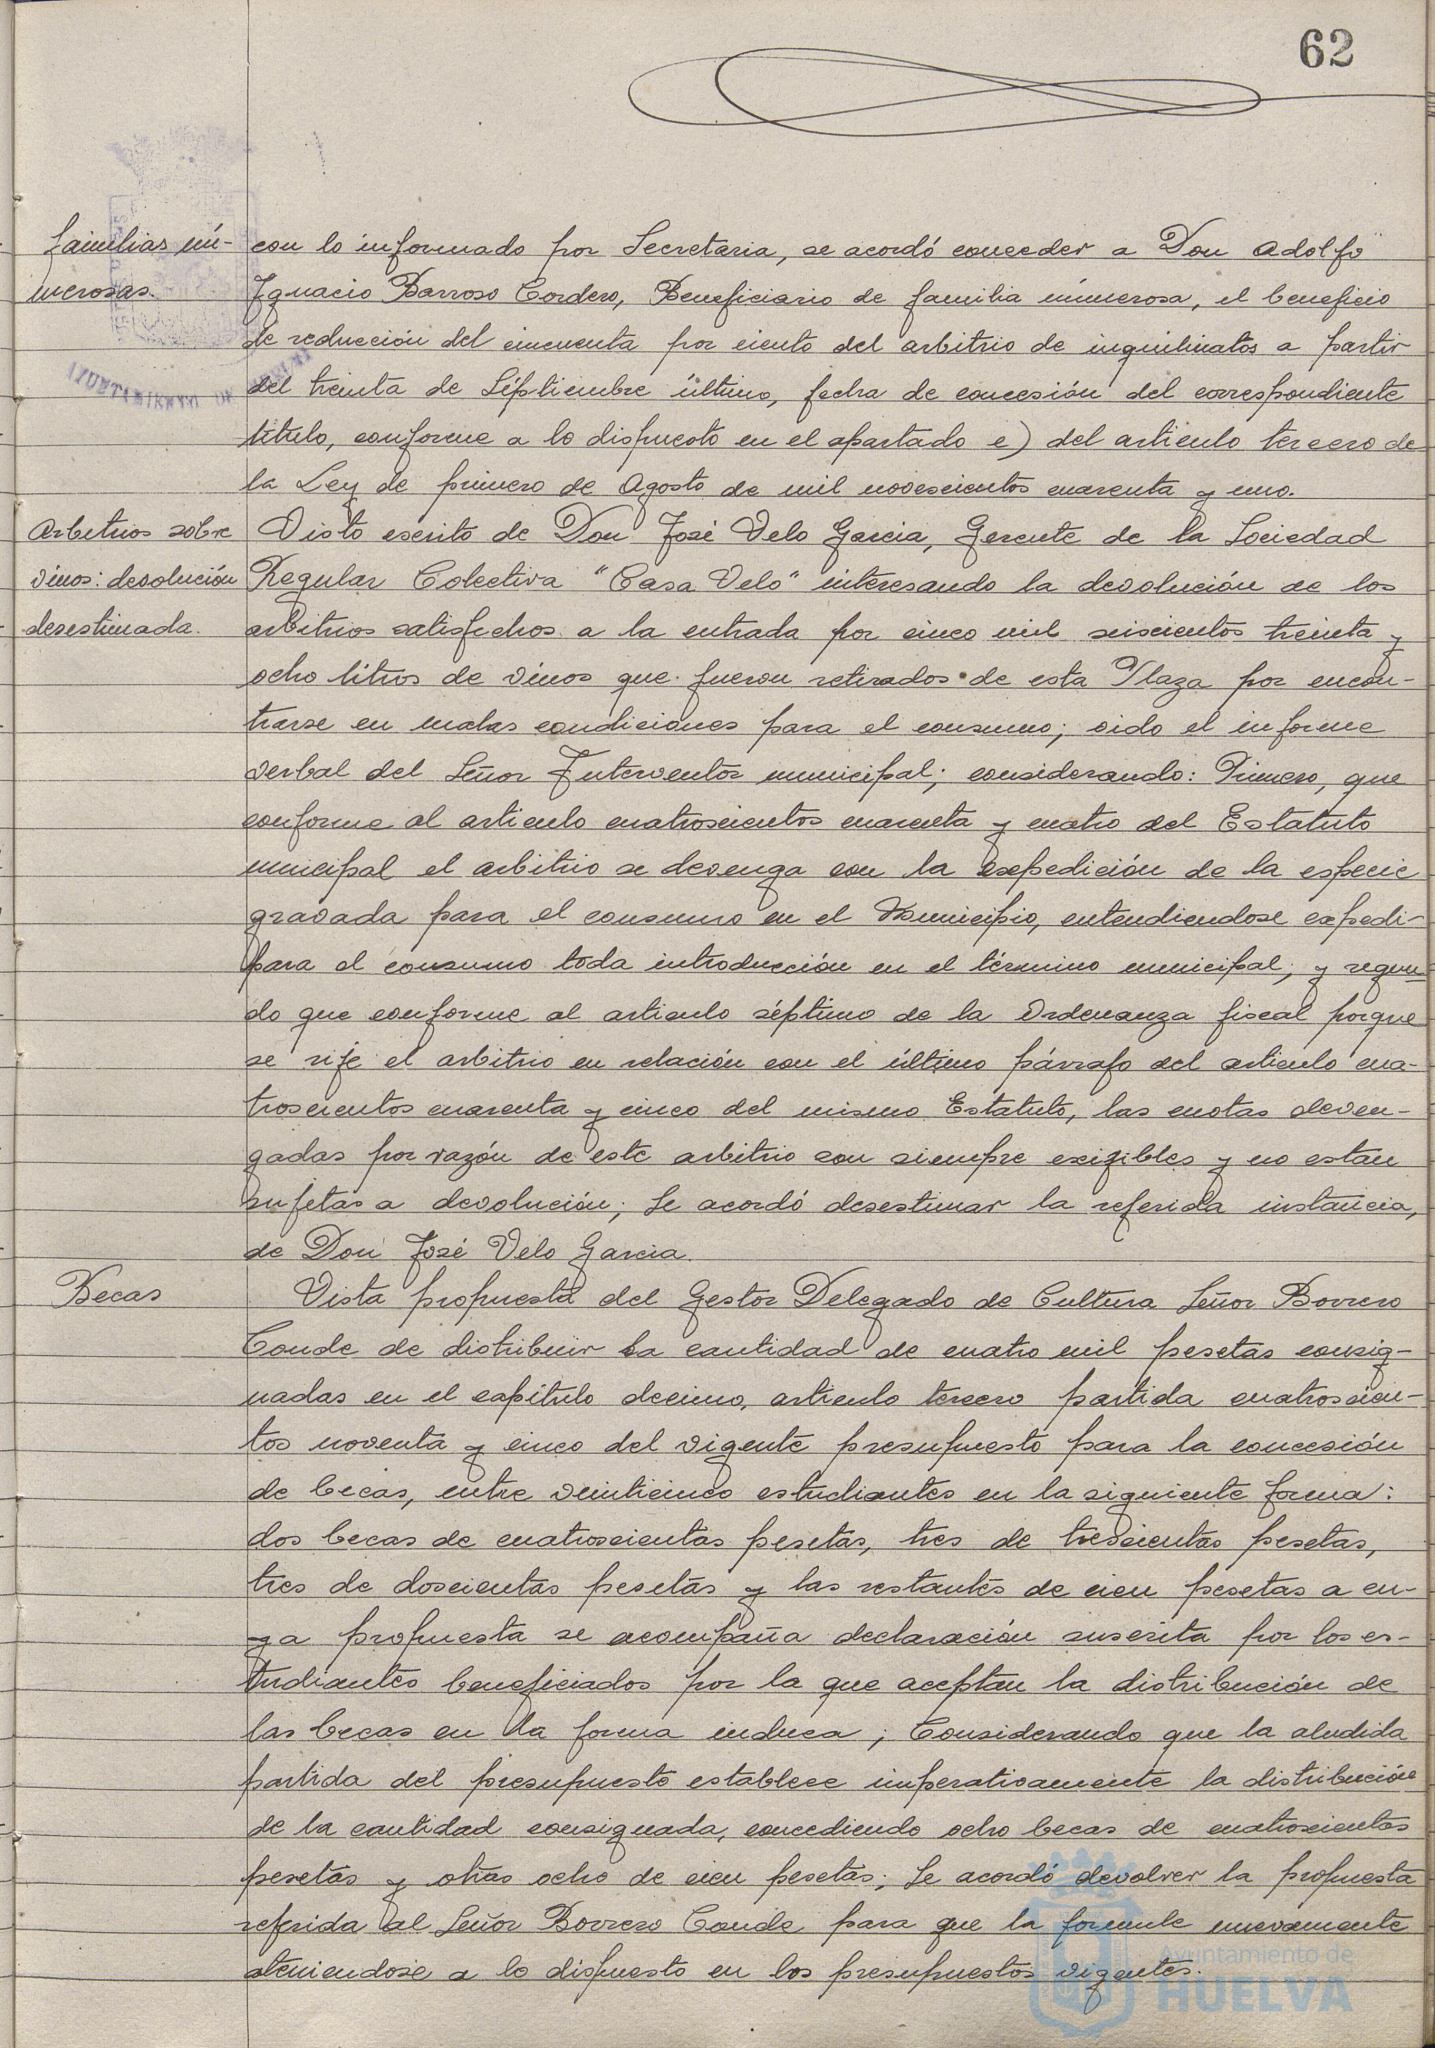 62
familias nú-
merosas.
con lo informado por Secretaria, se acordó conceder a Don Adolfo
Ignacio Barroso Cordero, Beneficiario de familia númerosa, el beneficio
de reducción del cincuenta por ciento del arbitrio de inquilinatos a partir
del treinta de Séptiembre último, fecha de concesión del correspondiente
título, conforme a lo dispuesto en el apartado e) del articulo tercero de
la Ley de primero de Agosto de mil novescientos cuarenta y uno.
Arbitrios sobre
vinos: devolución
desestimada.
Visto escrito de Don José Velo Garcia, Gerente de la Sociedad
Regular Colectiva "Casa Velo" interesando la devolución de los
arbitrios satisfechos a la entrada por cinco mil seiscientos treinta y
ocho litros de vinos que fueron retirados de esta Plaza por encon-
trarse en malas condiciones para el consumo; oido el informe
verbal del Señor Interventor municipal; considerando: Primero, que
conforme al articulo cuatroscientos cuarenta y cuatro del Estatuto
municipal el arbitrio se devenga con la expedición de la especie
gravada para el consumo en el Municipio, entendiendose expedi-
para el consumo toda introducción en el término municipal; y segun-
do que conforme al articulo séptimo de la Ordenanza fiscal porque
se rije el arbitrio en relación con el último párrafo del articulo cua-
troscientos cuarenta y cinco del mismo Estatuto, las cuotas deven-
gadas por razón de este arbitrio son siempre exigibles y no están
sujetas a devolución; Se acordó desestimar la referida instancia,
de Don José Velo Garcia.
Becas
Vista propuesta del Gestor Delegado de Cultura Señor Borrero
Conde de distribuir la cantidad de cuatro mil pesetas consig-
nadas en el capítulo decimo, articulo tercero partida cuatroscien-
tos noventa y cinco del vigente presupuesto para la concesión
de becas, entre veinticinco estudiantes en la siguiente forma:
dos becas de cuatroscientas pesetas, tres de trescientas pesetas,
tres de doscientas pesetas y las restantes de cien pesetas a cu-
ya propuesta se acompaña declaración suscrita por los es-
tudiantes beneficiados por la que aceptan la distribución de
las becas en la forma indica; Considerando que la aludida
partida del presupuesto establece imperativamente la distribución
de la cantidad consignada, concediendo ocho becas de cuatroscientas
pesetas y otras ocho de cien pesetas; Se acordó devolver la propuesta
referida al Señor Borrero Conde para que la formule nuevamente
ateniendose a lo dispuesto en los presupuestos vigentes.
Ayuntamiento de
HUELVA